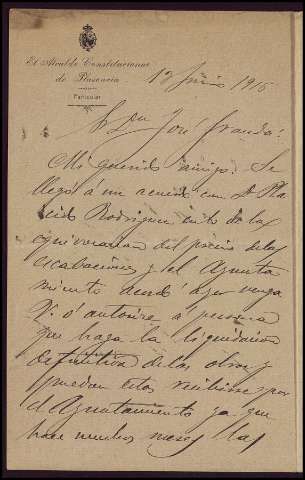 El Alcalde Constitucional
de Plasencia
Particular
12 Junio 1915
Sr. Dn. José
Mi querido amigo: Se
llegó á un acuerdo con D. Pla
cido Rodriguez en lo de las
del precio de las
escabaciones y el Ayunta
miento acordó ayer venga
V. ó autorice á persona
que haga la liquidacion
definitiva de las obras y
puedan estas recibirse por
el Ayuntamiento ya que
hace muchos meses las